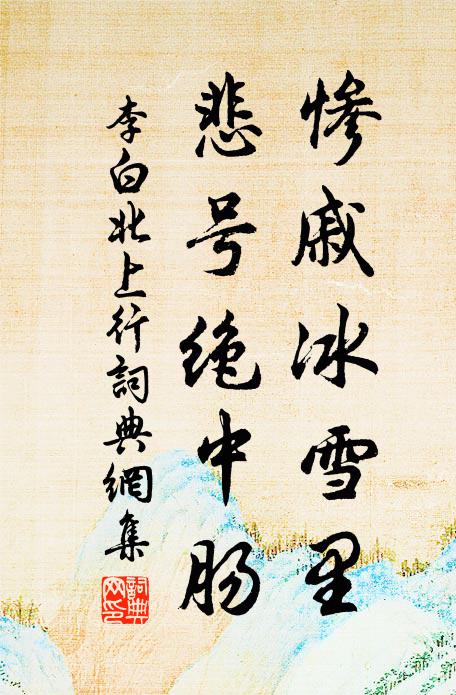 惨戚冰雪里
悲号绝中肠
李白北上行詞典網集
詞典网印